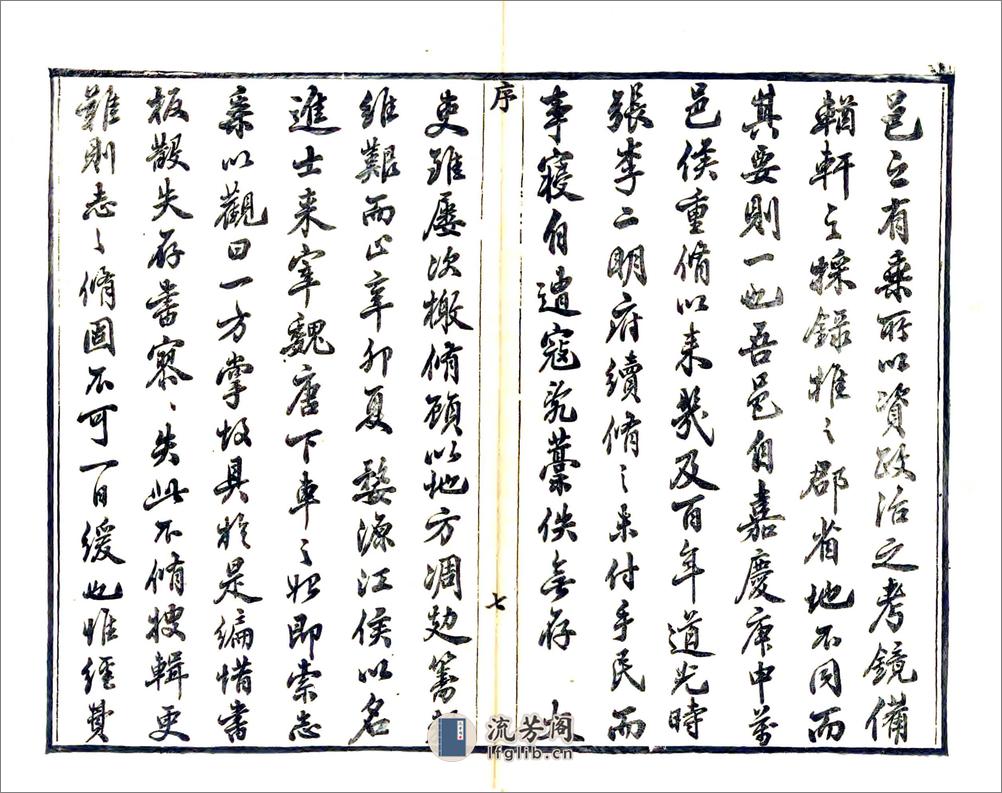 邑之有乘所以資政治之考鏡備
輶軒之採錄惟之郡省地不同而
其要則一也吾邑自嘉慶庚申萬
邑侯重脩以来幾及百年道光時
張李二明府續脩之未付手民而
事寝自遭寇乱藁佚無存 大
序
七
吏雖屡次檄脩顾以地方凋劫籌
維艱而止辛卯夏 婺源江侯以名
進士来宰魏塘下車之始即索志
乘以觀曰一方掌故具於是編惜書
板散失存書寥〻失此不脩搜輯更
難則志〻脩固不可一日緩也惟經費
流芳阁
lfglib.cn